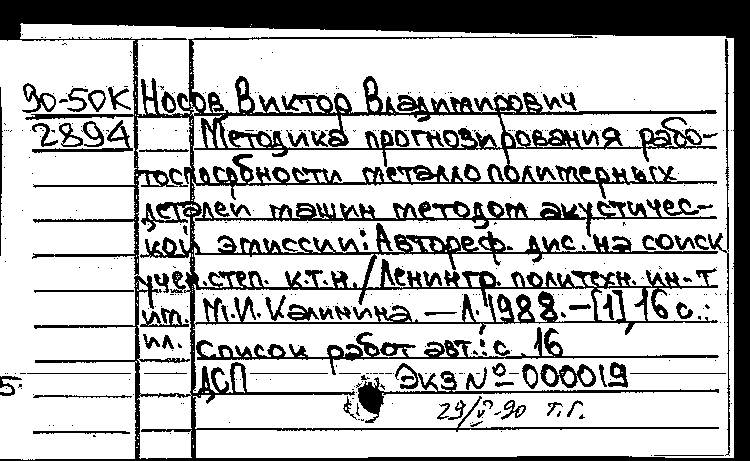 90-50К Носов Виктор Владимирович
2894 Методика прогнозирования рабо-
тоспособности металлополимерных
деталей машин методом акустичес-
кой эмиссии: Автореф. дис. на соиск
учен. степ. к.т.н. / Ленингр. политехн. ин-т
им. М.И. Калинина. — Л., 1988. — [1], 16 с.:
ил. Список работ авт.: с. 16
ДСП Экз № 000019
29/V-90 т.г.
5